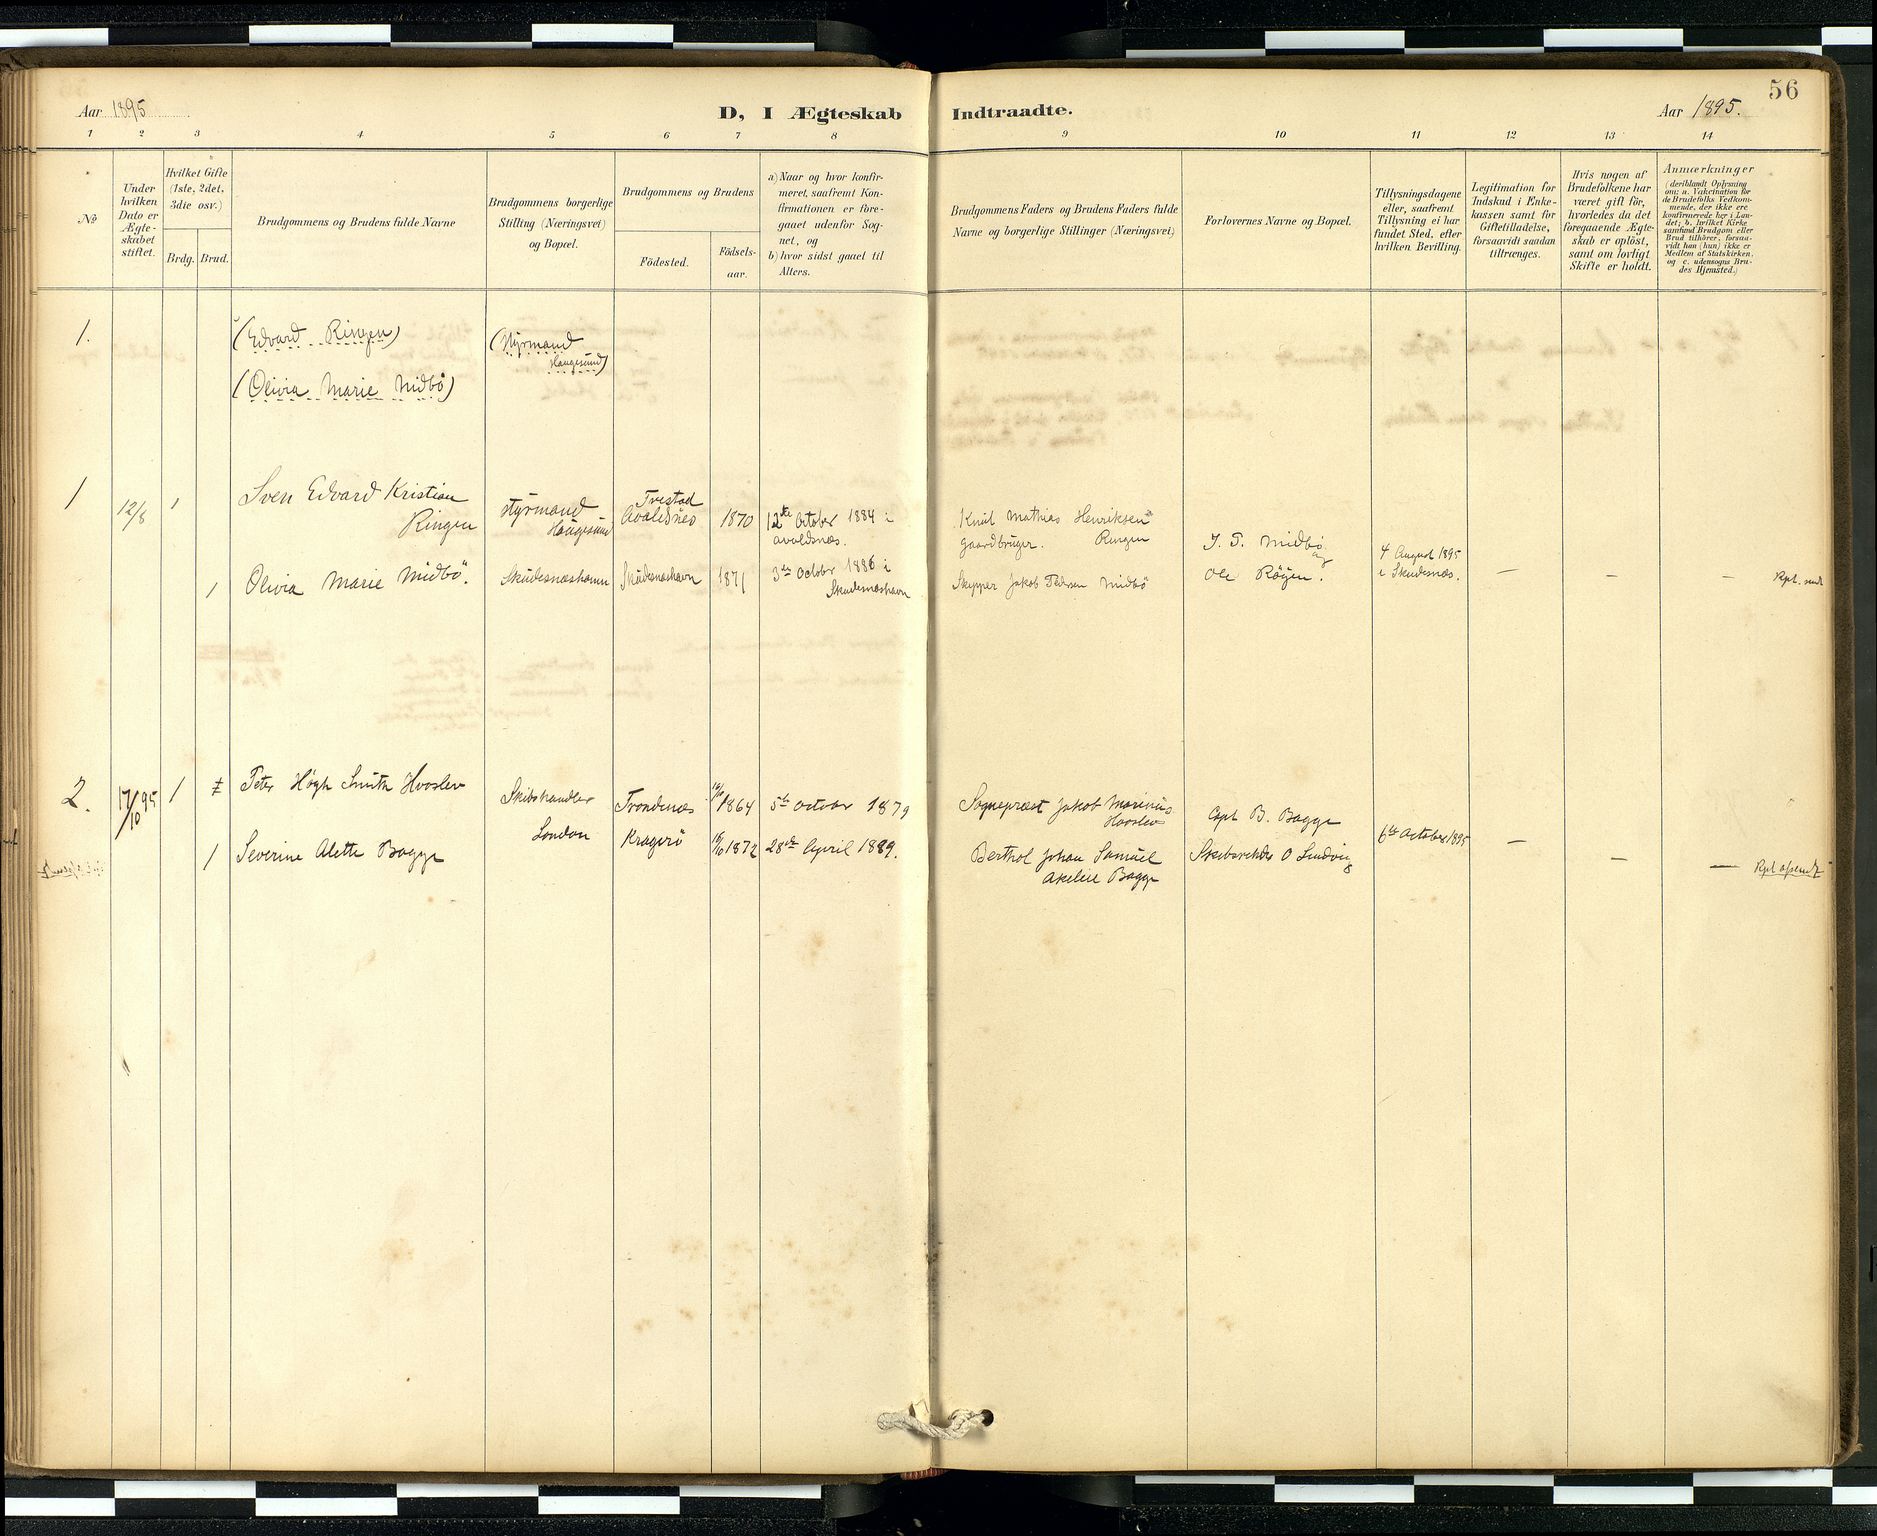 56
Aar 1895
D, I Ægteskab
Indtraadte.
Aar 1895.
1 2 3 4 5 6 7 8 9 10 11 12 13 14
No
Under hvilken Dato er Ægte-skabet stiftet.
Hvilket Gifte (1ste, 2det, 3die osv.)
Brdg. Brud.
Brudgommens og Brudens fulde Navne
Brudgommens borgerlige Stilling (Næringsvei) og Bopæl.
Brudgommens og Brudens
Födested.
Födsels-aar.
a) Naar og hvor konfir-
meret, saafremt Kon-
firmationen er fore-
gaaet udenfor Sog-
net, og
b) hvor sidst gaaet til
Alters.
Brudgommens Faders og Brudens Faders fulde
Navne og borgerlige Stillinger (Næringsvei)
Forlovernes Navne og Bopæl.
Tillysningsdagene
eller, saafremt
Tillysning ei har
fundet Sted, efter
hvilken Bevilling.
Legitimation for
Indskud i Enke-
kassen samt for
Giftetilladelse,
forsaavidt saadan
tiltrænges.
Hvis nogen af
Brudefolkene har
været gift för,
hvorledes da det
foregaaende Ægte-
skab er oplöst,
samt om lovligt
Skifte er holdt.
Anmærkninger
(deriblandt Oplysning
om: a. Vakcination for
de Brudefolks Vedkom-
mende, der ikke ere
konfirmerede her i Lan-
det; b. hvilket Kirke
samfund Brudgom eller
Brud tilhörer, forsaa-
vidt han (hun) ikke er
Medlem af Statskirken,
og c. udensogns Bru-
des Hjemsted.)
1.
(Edvard Ringen)
(Styrmand
Haugesund)
(Olivia Marie Midbö)
1 12/8 1
Sven Edvard Kristian
Ringen
Styrmand
Haugesund
Avaldsnes
1870
12te October 1884 i
Avaldsnes.
Knut Mathias Henriksen
Gaardbruger. Ringen
J. T. Midbö
og
4 August 1895
i Skudesnæs.
1
Olivia Marie Midbö.
Skudesnæshavn
Skudesnæshavn
1871
3de October 1886 i
Skudesnæshavn
Skipper Jakob Pedersen Midbö
Ole Röyen.
— — —
Rpt. sendt
2. 17/10 95 1
Peter Högh Smith Hvoslev
Skibshandler
London
Trondenæs
1864
5te October 1879
Sognepræst Jakob Marinus
Hvoslev
Capt B. Bagge
6te October 1895
1
Severine Alette Bagge
Kragerö
16/10 1872
28de April 1889.
Berthol Johan Samuel
Bagge
Skibsreder O Lindvig
— — —
Rpt afsendt